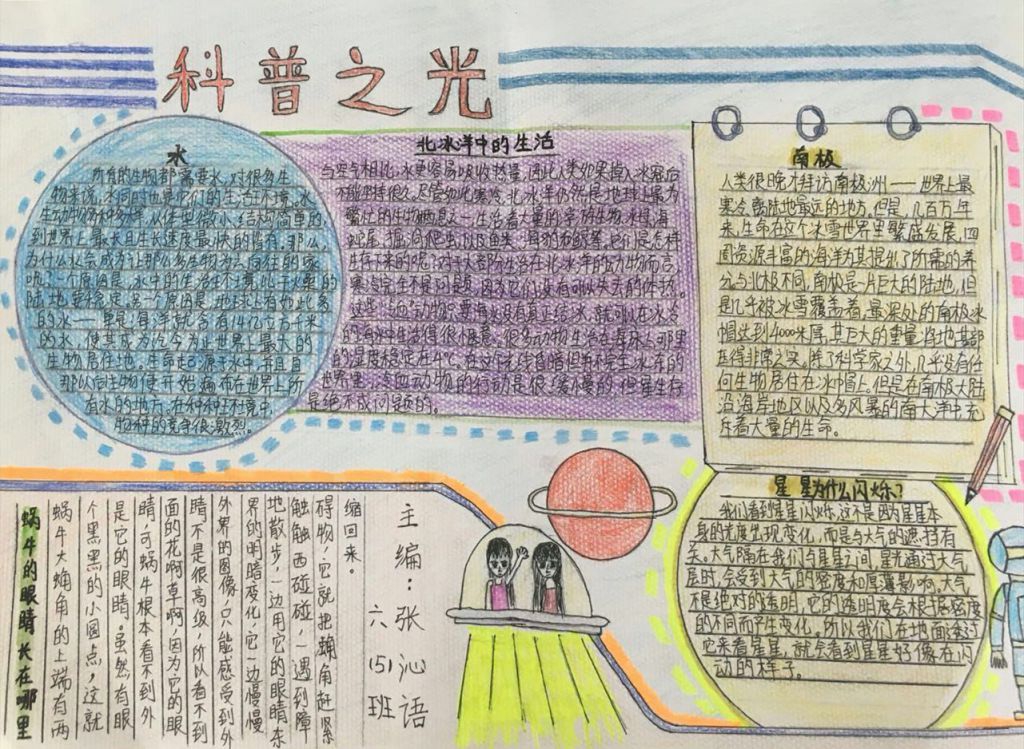 科普之光
水
所有的生物都需要水,对很多生
物来说,不同时也是它们的生活环境,水
生动物物种多样,从体型微小、结构简单的
到世界上最长且生长速度最快的皆有,那么,
为什么水会成为让那么多生物为之向往的家
呢?一个原因是,水中的生活环境比干燥的
陆地要稳定,另一个原因是,地球上有如此多
的水——单是海洋就含有14亿立方千米
的水,使其成为迄今为止世界上最大的
生物居住地。生命起源于水中,并且直
那以后生物便开始遍布在世界上所
有水的地方,在种种环境中,
物种的竞争很激烈。
北冰洋中的生活
与空气相比,水更容易吸收热量,因此人类如果掉入冰窟后
不能坚持很久,尽管如此寒冷,北冰洋仍然是地球上最为
繁忙的生物栖息之一,生活着大量的浮游生物、水母、海
蛇尾、掘洞爬虫,以及鱼类、海豹和鲸等,它们是怎样
生存下来的呢?对于大部分生活在北冰洋的动物而言,
寒冷完全不是问题,因为它们没有可以失去的体热。
这些冷血动物只要海水没有真正结冰,就可以在冰冷
的海水生活得很惬意。很多动物生活在海床上,那里
的温度稳定在4℃。在这个光线昏暗但并不完全冰冻的
世界里,冷血动物的行动是很缓慢的,但是生存
是绝不成问题的。
南极
人类很晚才拜访南极洲——世界上最
寒冷、离陆地最远的地方。但是,几百万年
来,生命在这个冰雪世界里繁盛发展,四
周资源丰富的海洋为其提供了所需的养
分与北极不同,南极是一片巨大的陆地,但
是几乎被冰雪覆盖着,最深处的南极冰
帽达到4000米厚,其巨大的重量将地基部
压得非常之实。除了科学家之外,几乎没有任
何生物居住在冰中脊上,但是在南极大陆
沿海岸地区以及多风暴的南大洋中充
斥着大量的生命。
星星为什么闪烁?
我们看到星星闪烁,这不是因为星星本
身的光度出现变化,而是与大气的遮挡有
关。大气隔在我们与星星之间,星光通过大气
层时,会受到大气的密度和厚薄影响。大气
不是绝对的透明,它的透明度会根据密度
的不同而产生变化。所以我们在地面透过
它来看星星,就会看到星星好像在闪
动的样子。
主编:张沁语
六(5)班
蜗牛的眼睛长在哪里
蜗牛大蜗角的上端有两
个黑黑的小圆点,这就
是它的眼睛。虽然有眼
睛,可蜗牛根本看不到外
面的花啊草啊,因为它的眼
睛不是很高级,所以看不到
外界的图像,只能感受到外
界的明暗变化,它一边慢慢
地散步,一边用它的眼睛东
触触西碰碰,一遇到障
碍物,它就把蜗角赶紧
缩回来。